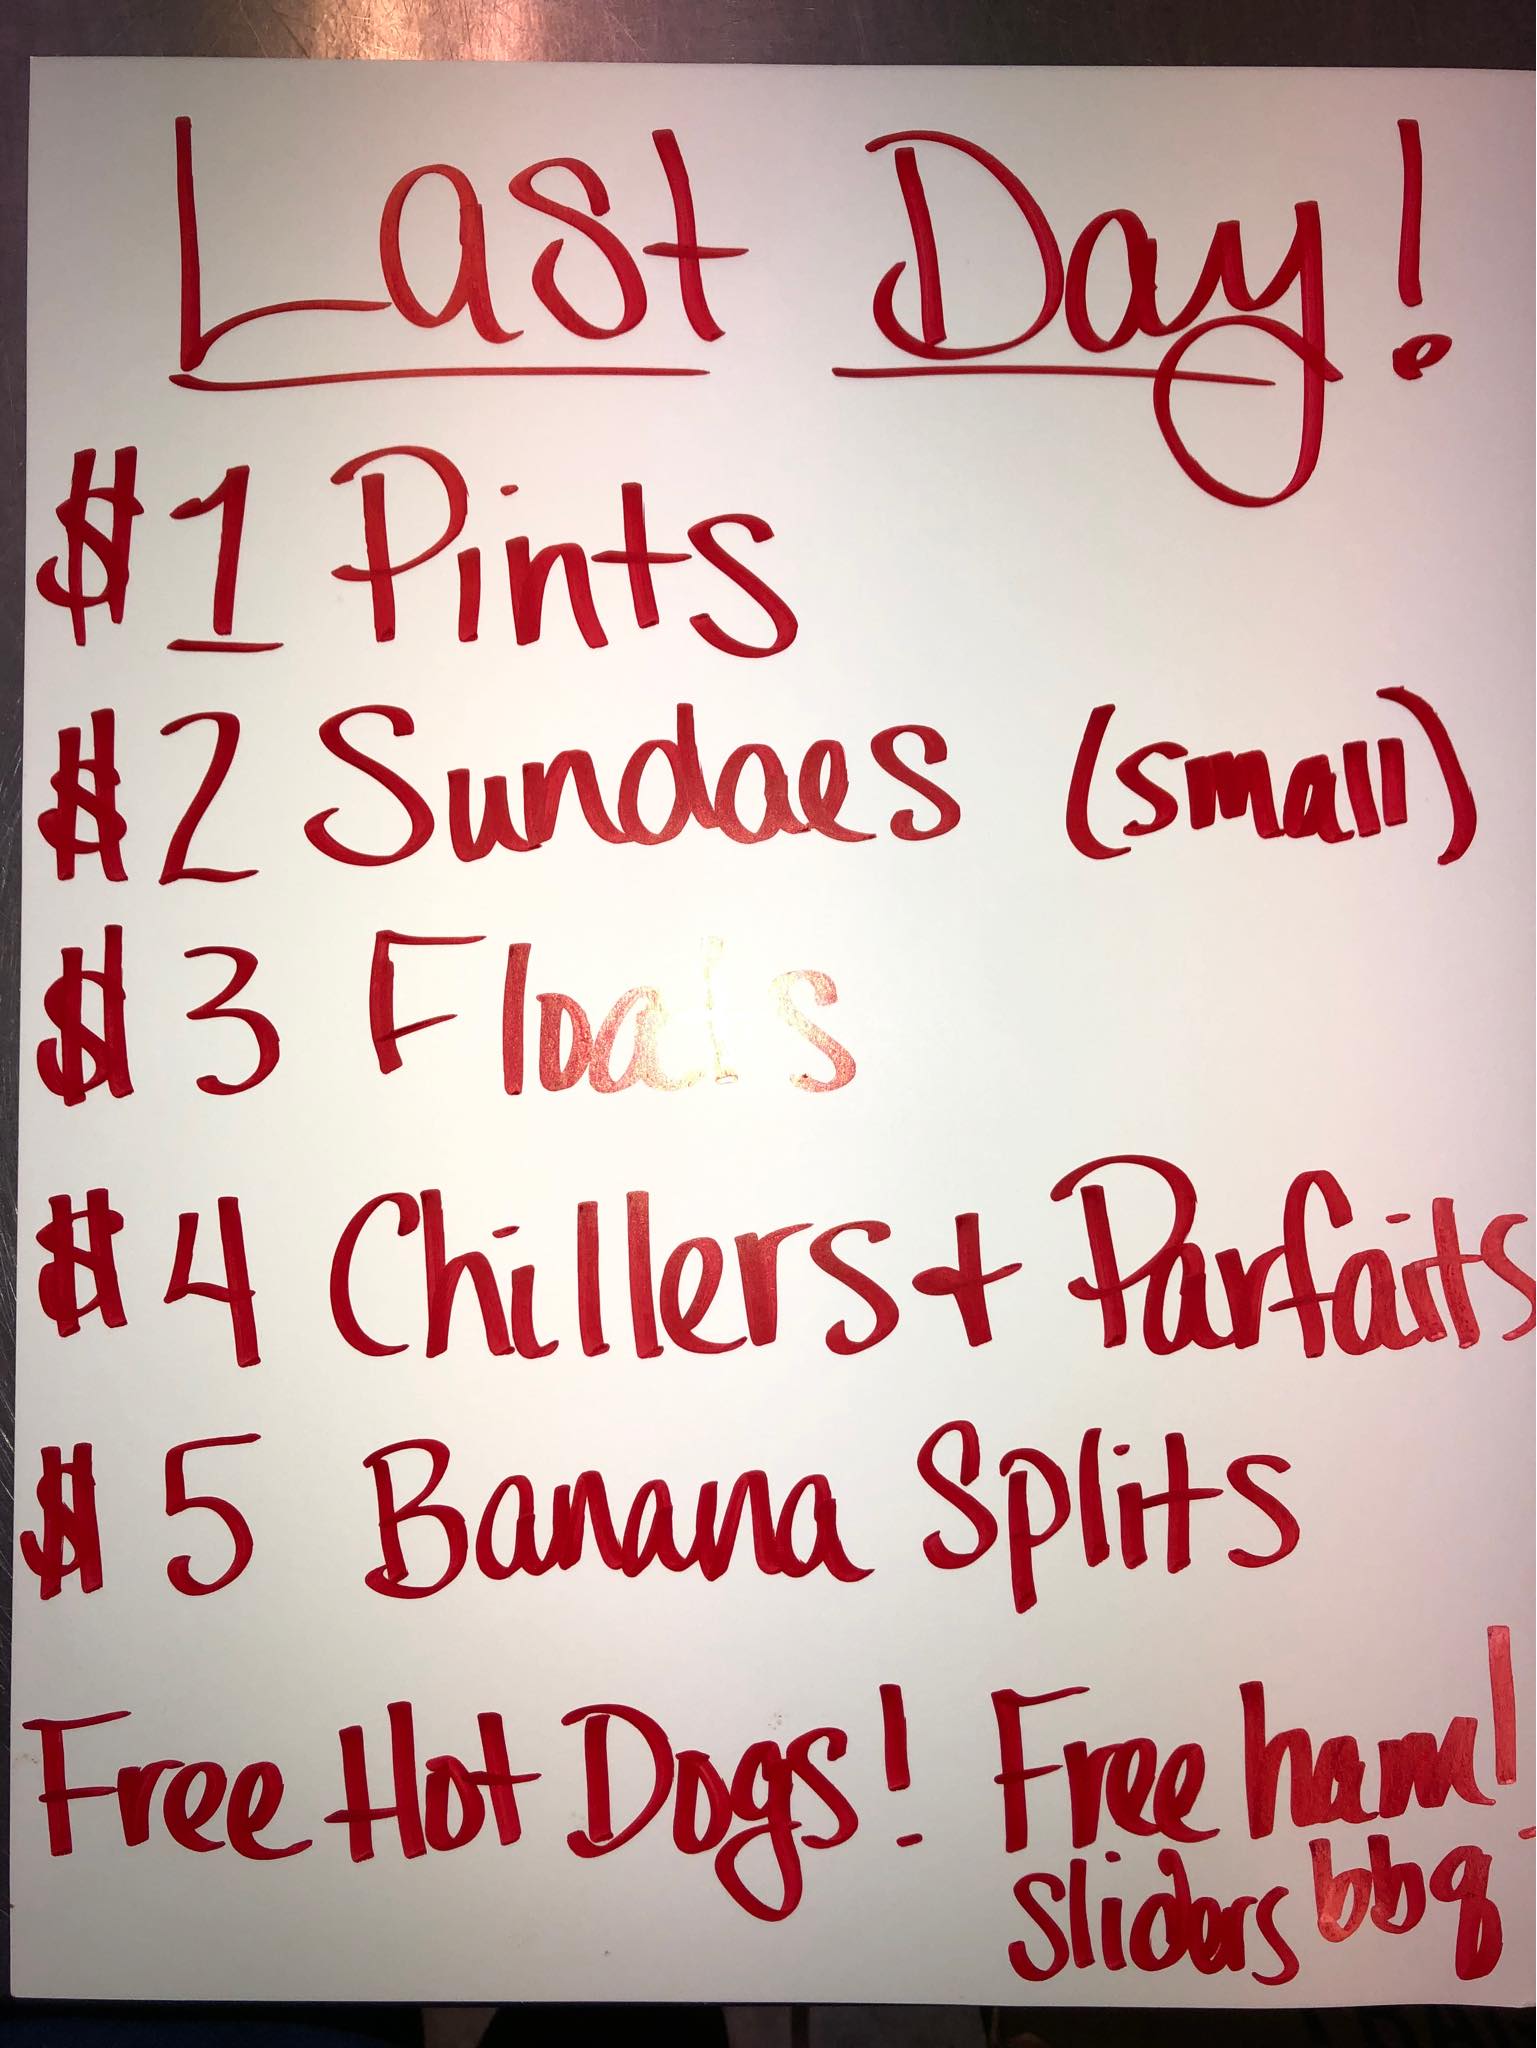 Last Day!
$1 Pints
$2 Sundaes (small)
$3 Floats
$4 Chillers + Parfaits
$5 Banana Splits
Free Hot Dogs! Free ham!
sliders bbq